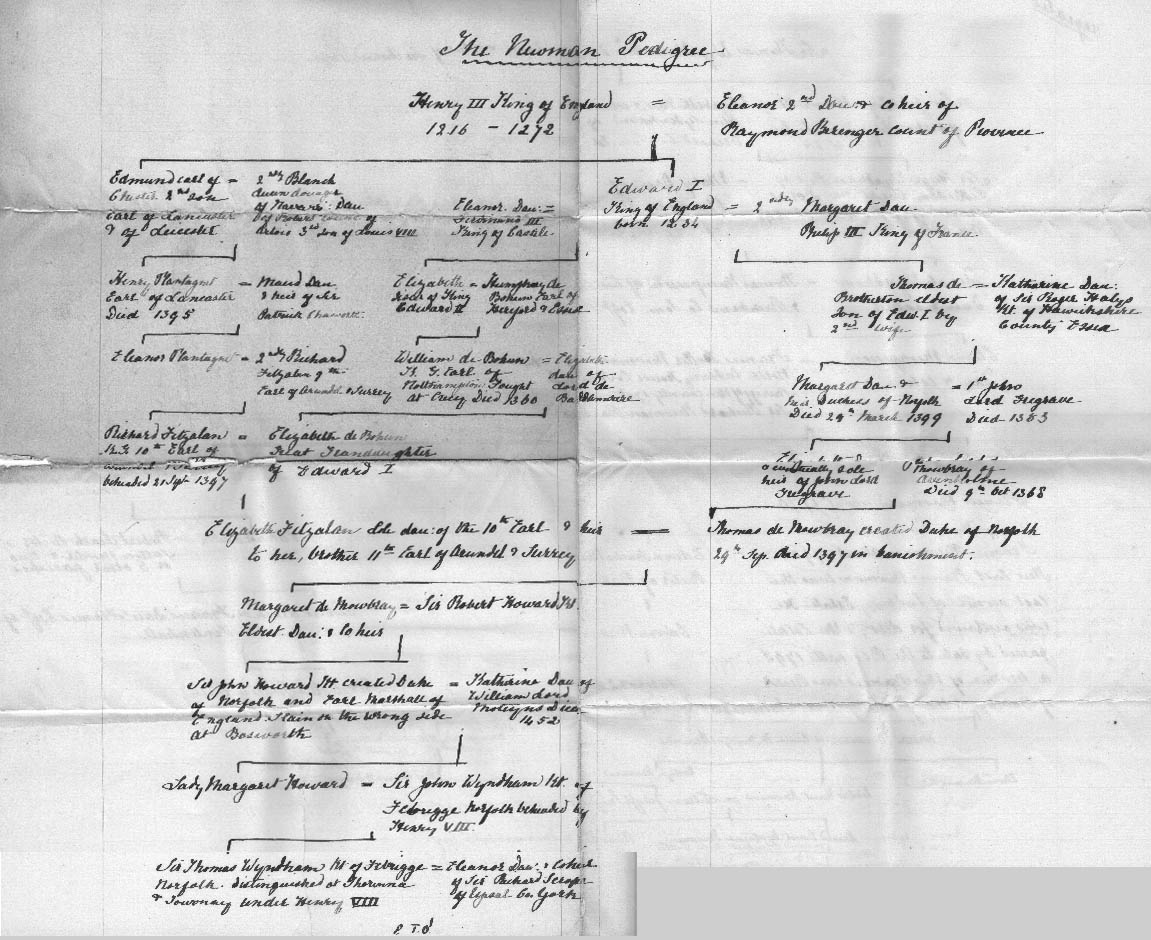 The Newman Pedigree
Henry III King of England = Eleanor 2nd Dau: & coheir of
1216 - 1272 Raymond Berenger Count of Provence
Edmund Earl of = 2ndly Blanch
Chester 2nd son Queen dowager
Earl of Lancaster of Navarre: Dau
& of Leicester of Robert Count of
Artois 3rd son of Louis VIII
Eleanor Dau: =
Ferdinand III
King of Castile
Edward I
King of England = 2ndly Margaret Dau
born 1234 Philip III King of France
Henry Plantagnt = Maud Dau
Earl of Lancaster & heir of Sir
Died 1345 Patrick Chaworth
Elizabeth = Humphry de
Bohun Earl of
Edward II Hereford & Essex
Thomas de = Katharine Dau:
Brotherton eldest of Sir Roger Halys
son of Edw. I by Kt. of Hawickshire
2nd wife County Essex
Eleanor Plantagnt = 2ndly Richard
Fitzalan 9th
Earl of Arundel & Surrey
William de Bohun = Elizabeth
K. G. Earl of dau of
Northampton Fought Lord de
at Crecy Died 1360 Badlesmere
Margaret Dau & = 1st John
heir Duchess of Norfolk Lord Segrave
Died 24th March 1399 Died 1353
Richard Fitzalan = Elizabeth de Bohun
K.G 10th Earl of Great Grandaughter
of Edward I
beheaded 21 Sept 1397
eventually sole Mowbray of
heir of John Lord Axeholme
Segrave Died 9th Oct 1368
Elizabeth Fitzalan Sole dau: of the 10th Earl & heir = Thomas de Mowbray created Duke of Norfolk
to her, brother 11th Earl of Arundel & Surrey 29th Sep. Died 1397 in banishment.
Margaret de Mowbray = Sir Robert Howard Kt.
Eldest Dau: & Coheir
Sir John Howard Kt created Duke = Katharine Dau of
of Norfolk and Earl Marshall of William Lord
England Slain on the wrong side Moleyns Died
at Bosworth 1452
Lady Margaret Howard = Sir John Wyndham Kt. of
Felbrigge Norfolk beheaded by
Henry VIII
Sir Thomas Wyndham Kt of Felbrigge = Eleanor Dau: & Coheir
Norfolk. distinguished at Thorinna of Sir Richard Scrope
& Tournay under Henry VIII of Upsal Co. York
P T O